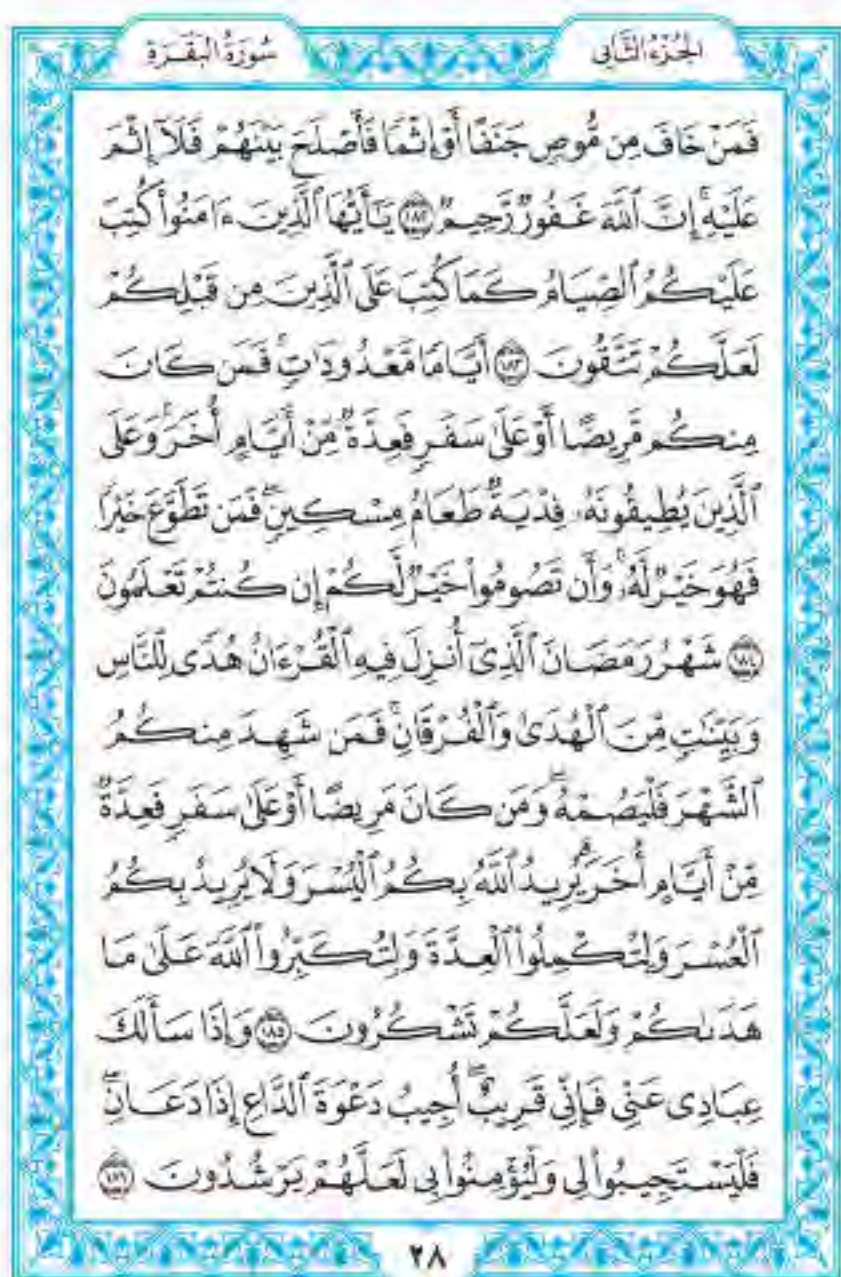 الجُزْءُ الثَّانِي
سُورَةُ الْبَقَرَةِ
فَمَنْ خَافَ مِن مُّوصٍ جَنَفًا أَوْ إِثْمًا فَأَصْلَحَ بَيْنَهُمْ فَلَآ إِثْمَ
عَلَيْهِۚ إِنَّ ٱللَّهَ غَفُورٌ رَّحِيمٌ ١٨٢ يَـٰٓأَيُّهَا ٱلَّذِينَ ءَامَنُوا۟ كُتِبَ
عَلَيْكُمُ ٱلصِّيَامُ كَمَا كُتِبَ عَلَى ٱلَّذِينَ مِن قَبْلِكُمْ
لَعَلَّكُمْ تَتَّقُونَ ١٨٣ أَيَّامًا مَّعْدُودَٰتٍۚ فَمَن كَانَ
مِنكُم مَّرِيضًا أَوْ عَلَىٰ سَفَرٍ فَعِدَّةٌ مِّنْ أَيَّامٍ أُخَرَۚ وَعَلَى
ٱلَّذِينَ يُطِيقُونَهُۥ فِدْيَةٌ طَعَامُ مِسْكِينٍۖ فَمَن تَطَوَّعَ خَيْرًا
فَهُوَ خَيْرٌ لَّهُۥۚ وَأَن تَصُومُوا۟ خَيْرٌ لَّكُمْ إِن كُنتُمْ تَعْلَمُونَ
١٨٤ شَهْرُ رَمَضَانَ ٱلَّذِىٓ أُنزِلَ فِيهِ ٱلْقُرْءَانُ هُدًى لِّلنَّاسِ
وَبَيِّنَـٰتٍ مِّنَ ٱلْهُدَىٰ وَٱلْفُرْقَانِۚ فَمَن شَهِدَ مِنكُمُ
ٱلشَّهْرَ فَلْيَصُمْهُۖ وَمَن كَانَ مَرِيضًا أَوْ عَلَىٰ سَفَرٍ فَعِدَّةٌ
مِّنْ أَيَّامٍ أُخَرَۗ يُرِيدُ ٱللَّهُ بِكُمُ ٱلْيُسْرَ وَلَا يُرِيدُ بِكُمُ
ٱلْعُسْرَ وَلِتُكْمِلُوا۟ ٱلْعِدَّةَ وَلِتُكَبِّرُوا۟ ٱللَّهَ عَلَىٰ مَا
هَدَىٰكُمْ وَلَعَلَّكُمْ تَشْكُرُونَ ١٨٥ وَإِذَا سَأَلَكَ
عِبَادِى عَنِّى فَإِنِّى قَرِيبٌۖ أُجِيبُ دَعْوَةَ ٱلدَّاعِ إِذَا دَعَانِۖ
فَلْيَسْتَجِيبُوا۟ لِى وَلْيُؤْمِنُوا۟ بِى لَعَلَّهُمْ يَرْشُدُونَ ١٨٦
٢٨